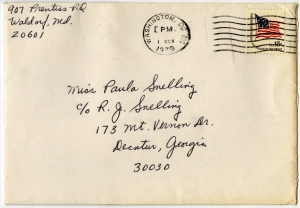 907 Prentiss Rd
Waldorf, Md.
20601
WASHINGTON, DC
PM
1979
Miss Paula Snelling
c/o R. J. Snelling
173 Mt. Vernon Dr.
Decatur, Georgia
30030